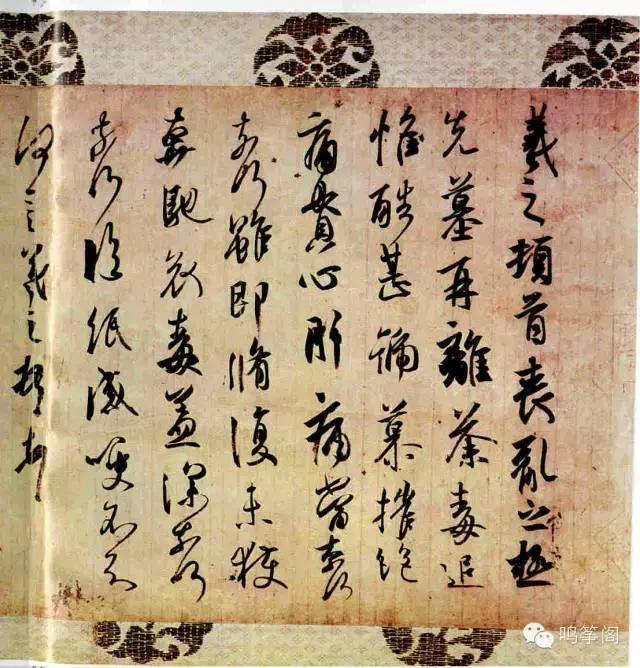 羲之頓首喪亂之極
先墓再離荼毒追
惟酷甚號慕摧絕
痛貫心肝痛當奈何
奈何雖即脩復未獲
奔馳哀毒益深奈何
奈何臨紙感哽不知
何言羲之頓首頓首
鸣筝阁